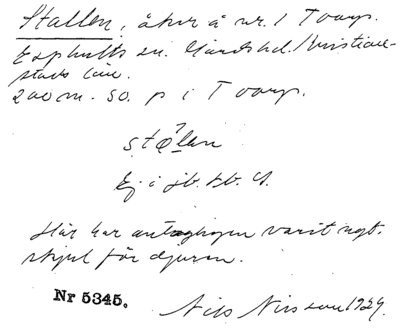 Stallen, åker å nr. 1 Toarp.
Exphults sn. Gärds hd. Kristian-
stads län.
200 m. SO. p i Toarp.
stǫ́len
Ej i jb. tb. 
Här har antagligen varit ngt.
skjul för djuren.
Nr 5345.
Nils Nilsson 1929.